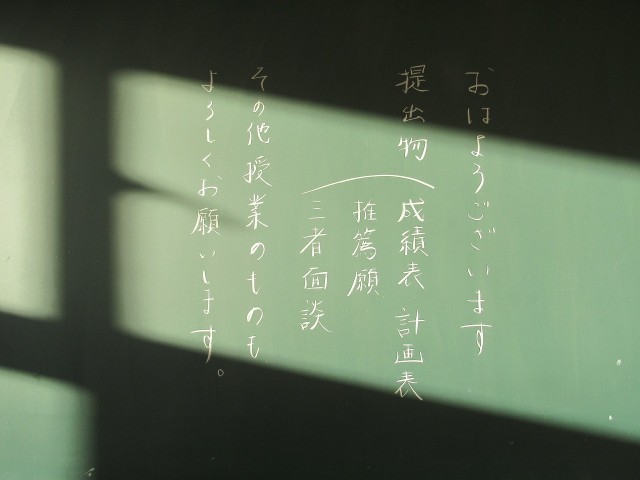 おはようございます
提出物
成績表 計画表
推篤願
三者面談
その他授業のものも
よろしくお願いします。